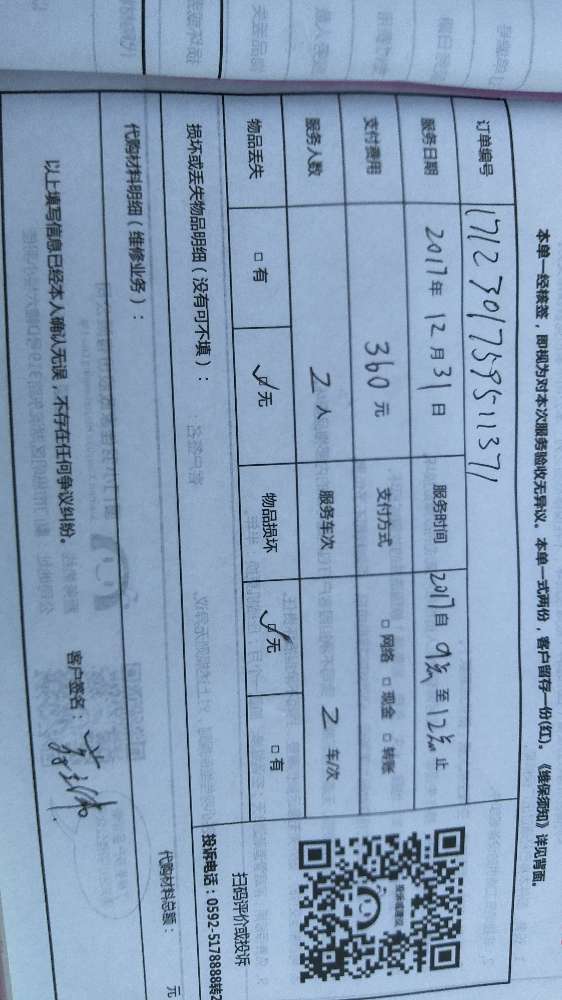 本单一经核签，即视为对本次服务验收无异议。本单一式两份，客户留存一份(红)。《维保须知》详见背面。
订单编号 1712301759511371
服务日期 2017年 12月31日 服务时间 2017自 9点 至12点止
支付费用 360元 支付方式 □网络 □现金 □转账
服务人数 2人 服务车次 2 车/次
物品丢失 □有 ☑无 物品损坏 ☑无 □有
损坏或丢失物品明细（没有可不填）：
投诉建议
扫码评价或投诉
投诉电话：0592-5178888转2
代购材料明细（维修业务）：
代购材料总额： 元
以上填写信息已经本人确认无误，不存在任何争议纠纷。 客户签名：